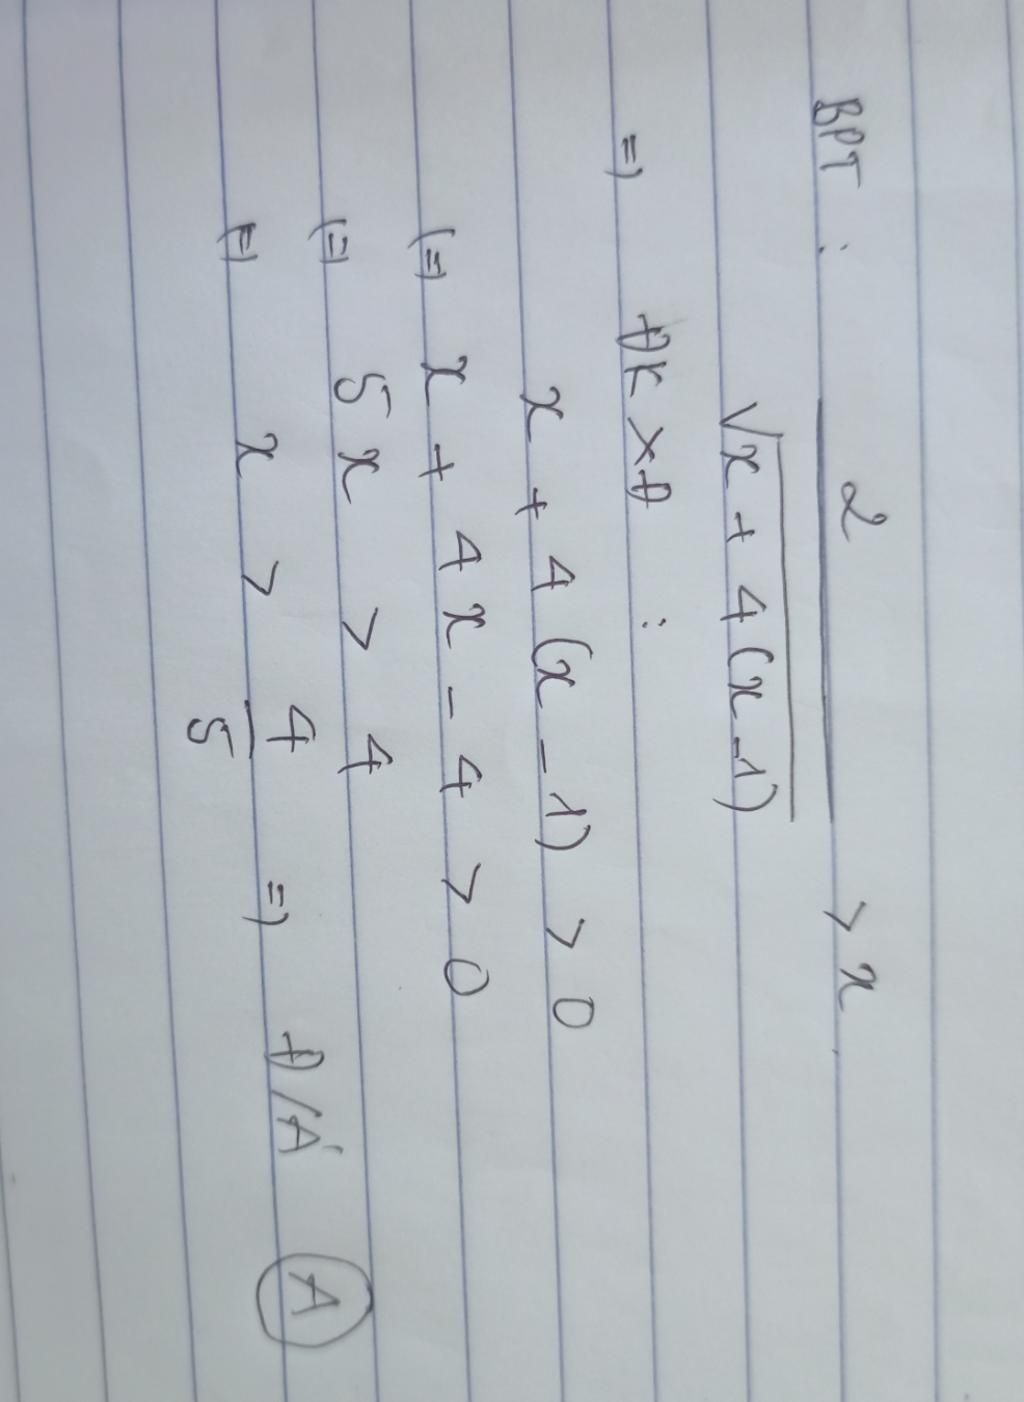 BPT : 2 / √(x + 4(x - 1)) > x
=) ĐK XĐ :
x + 4 (x - 1) > 0
(=) x + 4x - 4 > 0
(=) 5x > 4
(=) x > 4/5 =) Đ/Á A